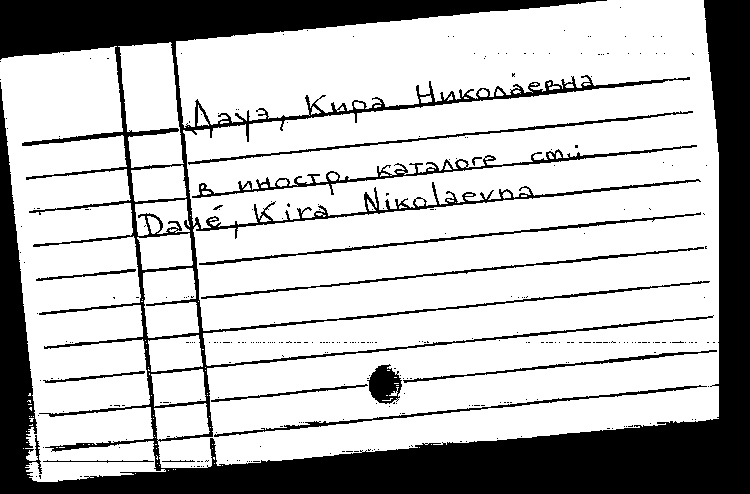 Дауэ, Кира Николаевна
в иностр. каталоге см.:
Daué, Kira Nikolaevna